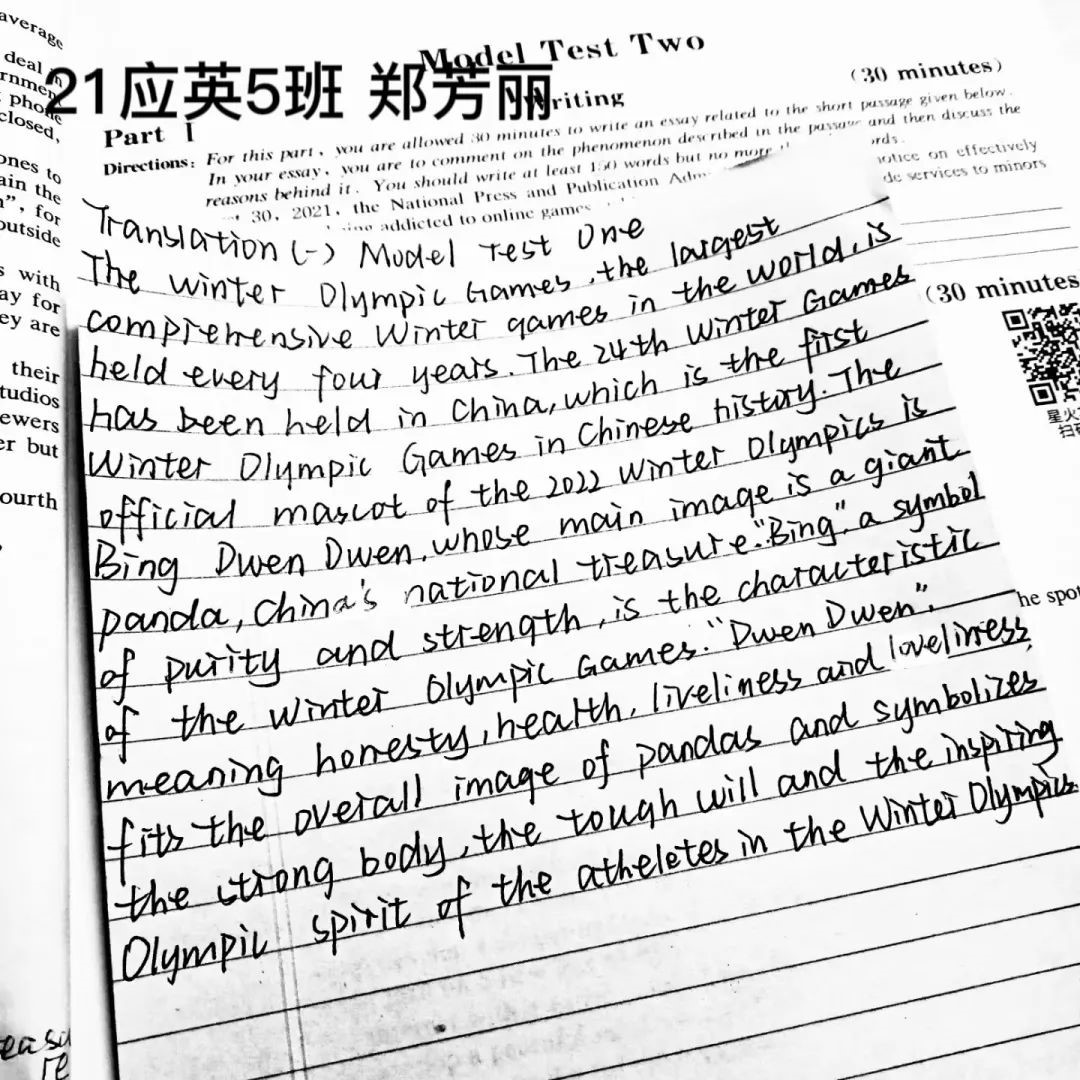 average
deal in
rnment
phone
closed,
ones to
ain the
n”, for
outside
s with
ay for
ey are
their
tudios
ewers
er but
ourth
Model Test Two
21应英5班 郑芳丽
Part I
Writing
(30 minutes)
Directions: For this part, you are allowed 30 minutes to write an essay related to the short passage given below.
In your essay, you are to comment on the phenomenon described in the passage and then discuss the
reasons behind it. You should write at least 150 words but no more
rds.
30, 2021, the National Press and Publication
notice on effectively
addicted to online games
de services to minors
Translation (一) Model Test One
The Winter Olympic Games, the largest
comprehensive Winter games in the world, is
held every four years. The 24th Winter Games
has been held in China, which is the first
Winter Olympic Games in Chinese history. The
official mascot of the 2022 Winter Olympics is
Bing Dwen Dwen, whose main image is a giant
panda, China's national treasure. "Bing", a symbol
of purity and strength, is the characteristic
of the Winter Olympic Games. "Dwen Dwen",
meaning honesty, health, liveliness and loveliness,
fits the overall image of pandas and symbolizes
the strong body, the tough will and the inspiring
Olympic spirit of the atheletes in the Winter Olympics.
(30 minutes
星火
扫码
he spot